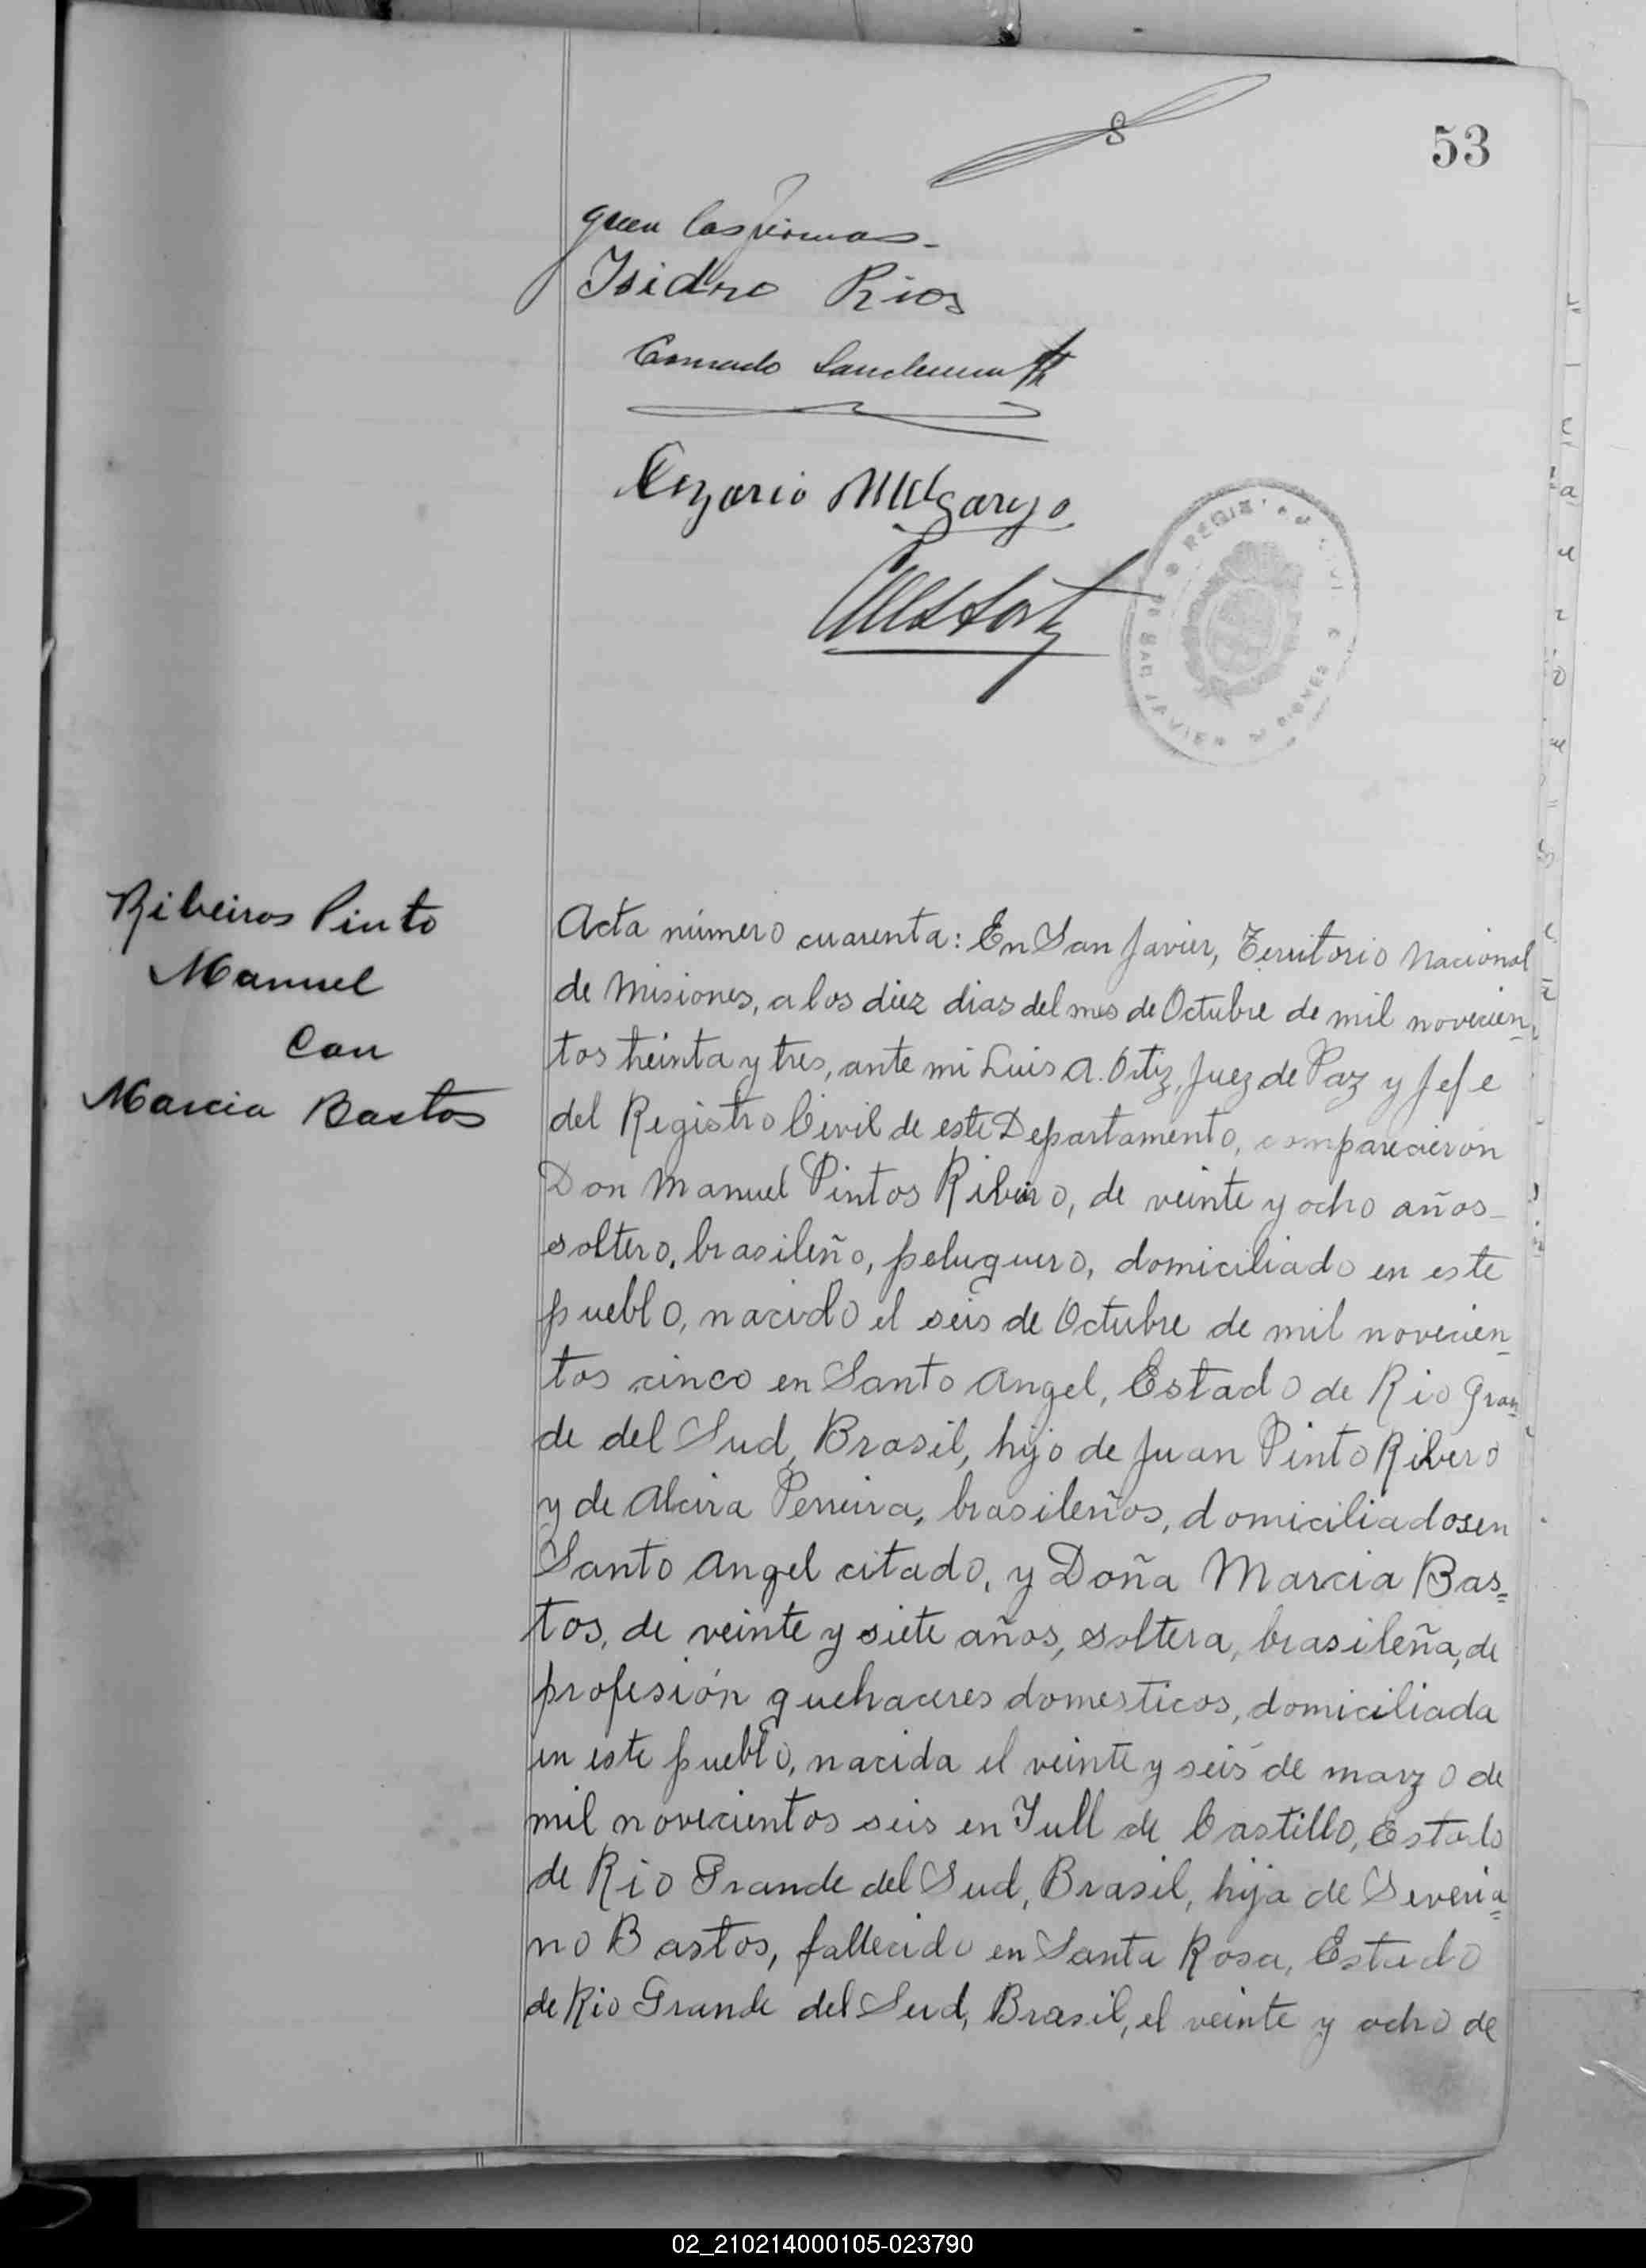 53
quen las firmas.
Isidro Rios
Conrado
Cezario Melgarejo
REGIS CIVIL
SAN JAVIER MISIONES
Ribeiros Pinto
Manuel
Con
Marcia Bastos
Acta número cuarenta: En San Javier, Territorio Nacional
de Misiones, a los diez dias del mes de Octubre de mil novecien-
tos treinta y tres, ante mi Luis A. Ortiz, Juez de Paz y Jefe
del Registro Civil de este Departamento, comparecieron
Don Manuel Pintos Ribeiro, de veinte y ocho años
soltero, brasileño, peluquero, domiciliado en este
pueblo, nacido el seis de Octubre de mil novecien-
tos cinco en Santo Angel, Estado de Rio Gran-
de del Sud, Brasil, hijo de Juan Pinto Ribero
y de Alcira Perreira, brasileños, domiciliados en
Santo Angel citado, y Doña Marcia Bas=
tos, de veinte y siete años, soltera, brasileña, de
profesión quehaceres domesticos, domiciliada
en este pueblo, nacida el veinte y seis de marzo de
mil novecientos seis en Yull de Castillo, Estado
de Rio Grande del Sud, Brasil, hija de Severia=
no Bastos, fallecido en Santa Rosa, Estado
de Rio Grande del Sud, Brasil, el veinte y ocho de
02_210214000105-023790